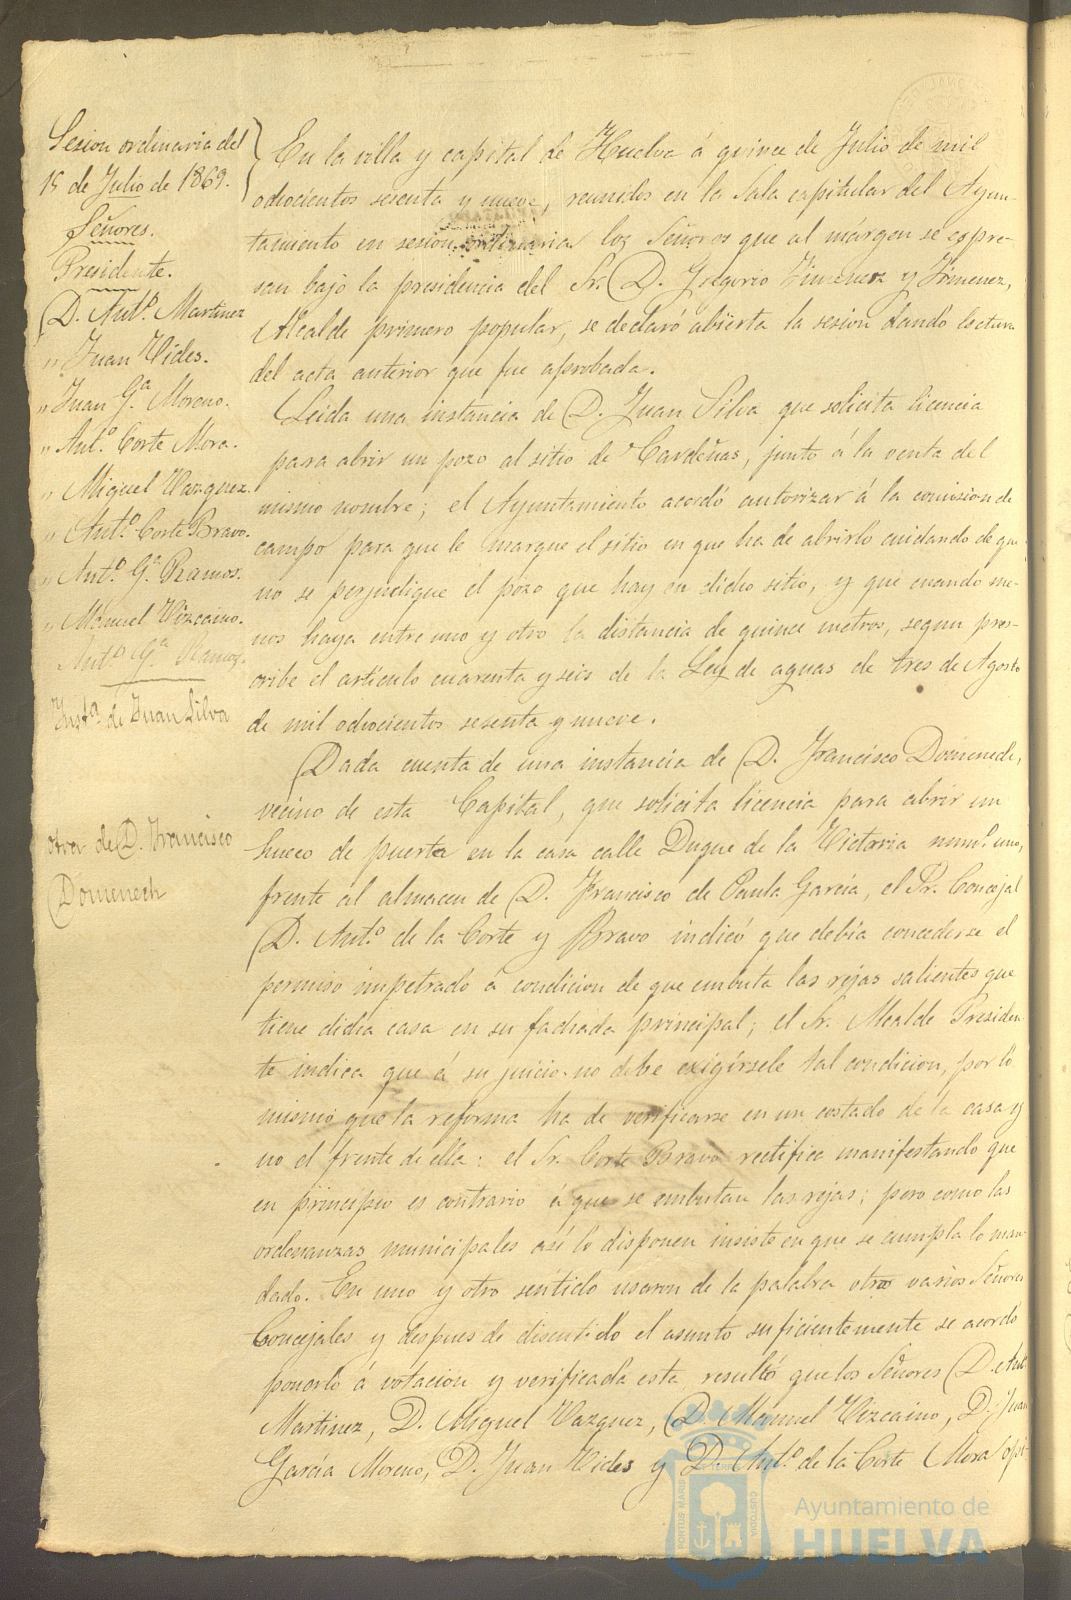 Sesion ordinaria del
15 de Julio de 1869.
Señores.
Presidente.
D. Antº. Martinez
" Juan Vides.
" Juan Gª Moreno.
" Antº Corte Mora.
" Miguel Vazquez.
" Antº Corte Bravo.
" Antº Gª Ramos.
" Manuel Vizcaino.
Antº Gª Ramos.
Instª de Juan Silva
otra de D. Francisco
Domenech
En la villa y capital de Huelva á quince de Julio de mil
ochocientos sesenta y nueve, reunidos en la Sala capitular del Ayun-
tamiento en sesion ordinaria los Señores que al márgen se espre-
san bajo la presidencia del Sr. D. Gregorio Jimenez y Jimenez,
Alcalde primero popular, se declaró abierta la sesion dando lectura
del acta anterior que fue aprobada.
Leida una instancia de D. Juan Silva que solicita licencia
para abrir un pozo al sitio de Cardeñas, junto á la venta del
mismo nombre; el Ayuntamiento acordó autorizar á la comision de
campo para que le marque el sitio en que ha de abrirlo cuidando de que
no se perjudique el pozo que hay en dicho sitio, y que cuando me-
nos haya entre uno y otro la distancia de quince metros, segun pres-
cribe el artículo cuarenta y seis de la Ley de aguas de tres de Agosto
de mil ochocientos sesenta y nueve.
Dada cuenta de una instancia de D. Francisco Domenech,
vecino de esta Capital, que solicita licencia para abrir un
hueco de puerta en la casa calle Duque de la Victoria numº uno,
frente al almacen de D. Francisco de Paula García, el Sr. Concejal
D. Antº de la Corte y Bravo indicó que debia concederse el
permiso impetrado á condicion de que embuta las rejas salientes que
tiene dicha casa en su fachada principal; el Sr. Alcalde Presiden-
te indica que á su juicio no debe exigírsele tal condicion, por lo
mismo que la reforma ha de verificarse en un costado de la casa y
no el frente de ella: el Sr. Corte Bravo rectifica manifestando que
en principio es contrario á que se embutan las rejas; pero como las
ordenanzas municipales así lo disponen insiste en que se cumpla lo man-
dado. En uno y otro sentido usaron de la palabra otros varios Señores
Concejales y despues de discutido el asunto suficientemente se acordó
ponerlo á votacion y verificada esta, resultó que los Señores D. Antº
Martinez, D. Miguel Vazquez, D. Manuel Vizcaino, D. Juan
García Moreno, D. Juan Vides y D. Antº de la Corte Mora opi-
PORTUS MARIS
CUSTODIA
Ayuntamiento de
HUELVA